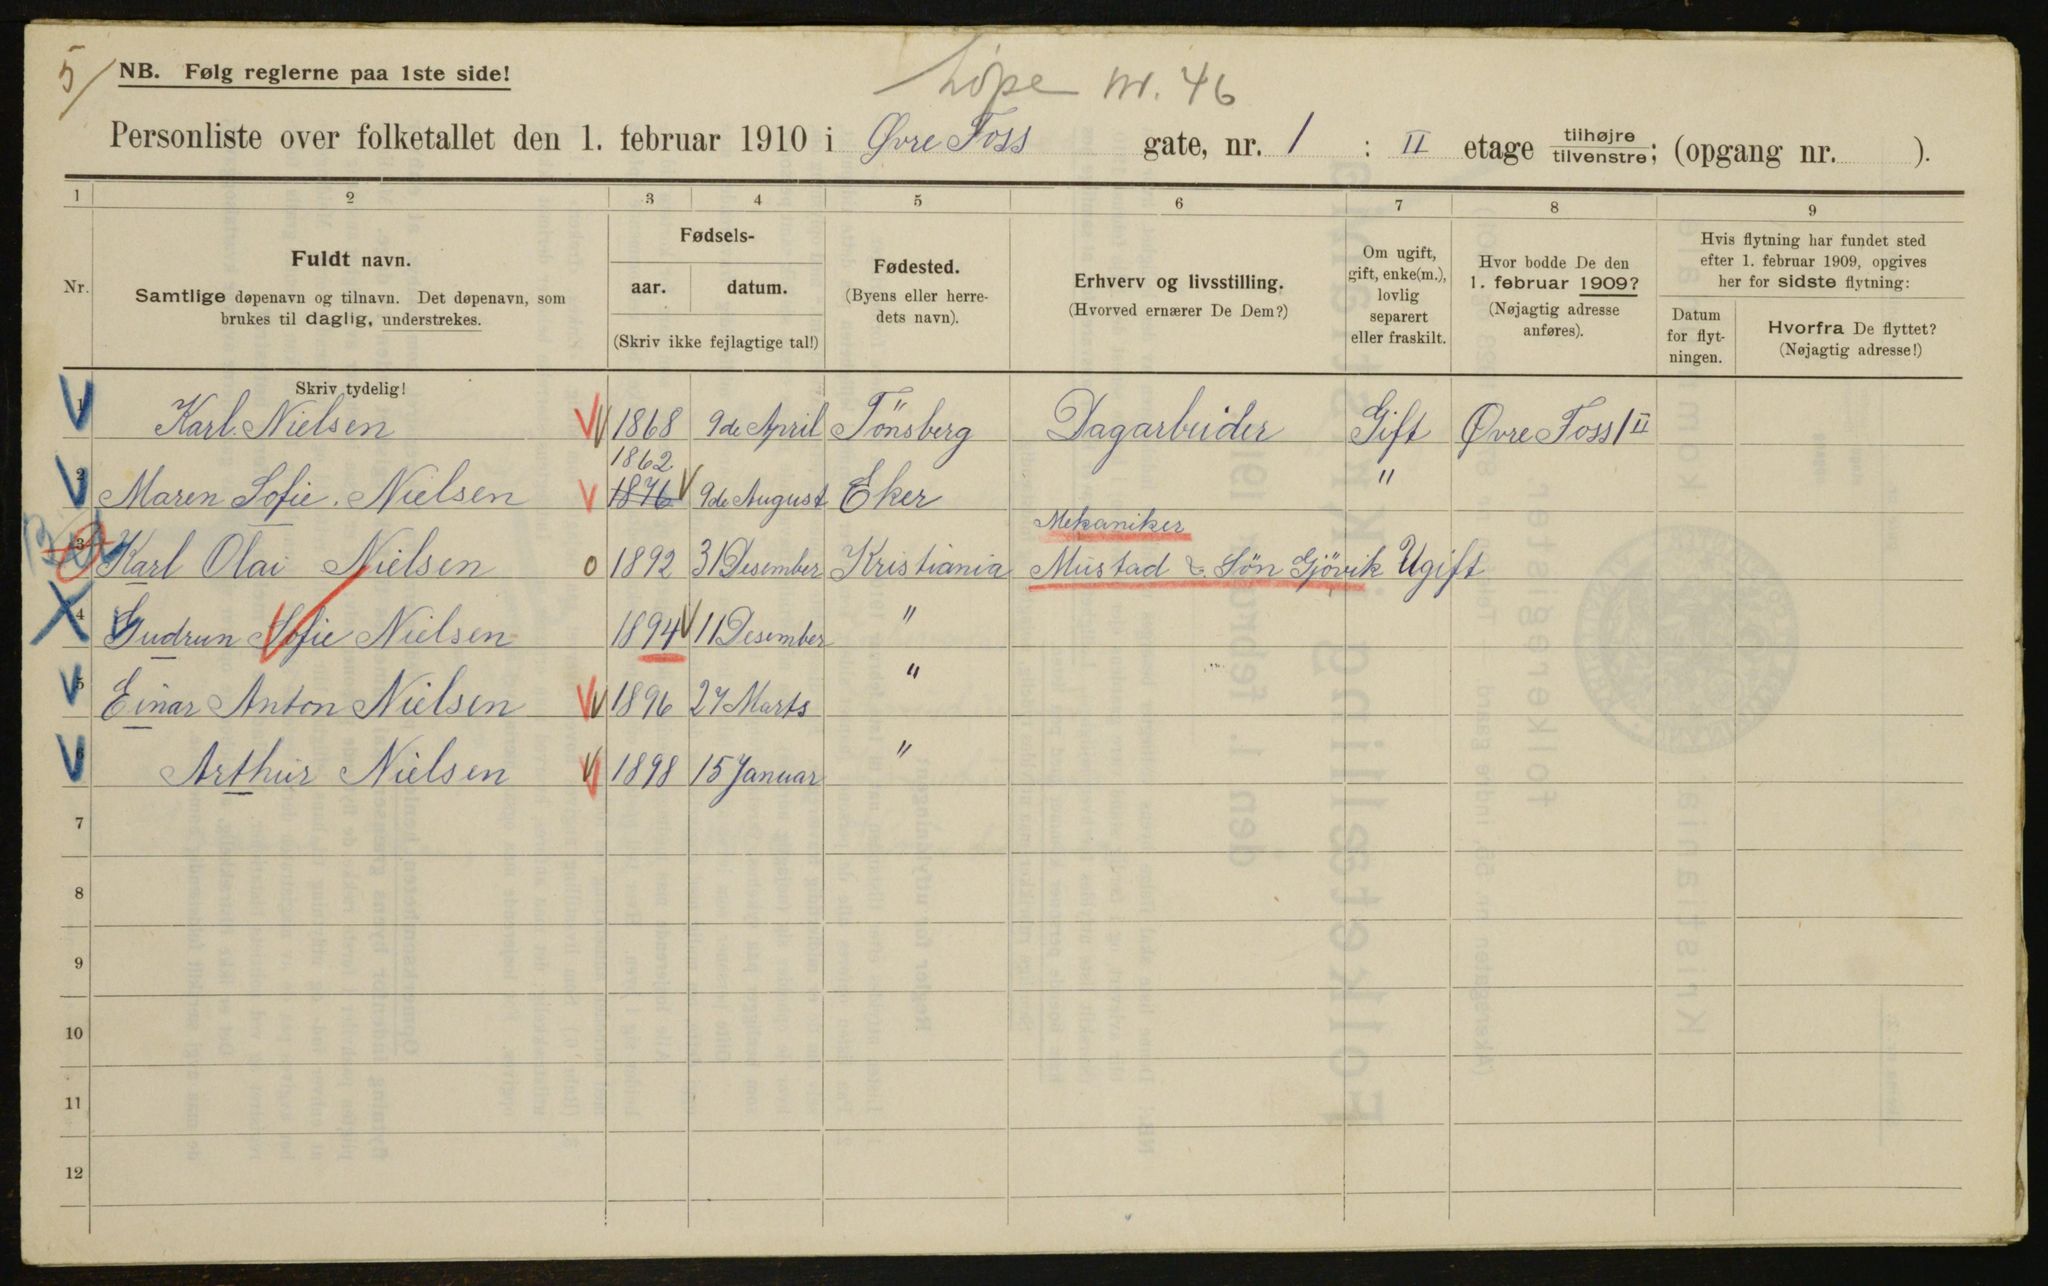 5/
NB. Følg reglerne paa 1ste side!
Løpe nr. 46
Personliste over folketallet den 1. februar 1910 i Øvre Foss gate, nr. 1 : II etage tilhøjre/tilvenstre; (opgang nr. ).
1 2 3 4 5 6 7 8 9
Nr.
Fuldt navn.
Samtlige døpenavn og tilnavn. Det døpenavn, som
brukes til daglig, understrekes.
Fødsels-
aar. datum.
(Skriv ikke fejlagtige tal!)
Fødested.
(Byens eller herre-
dets navn).
Erhverv og livsstilling.
(Hvorved ernærer De Dem?)
Om ugift,
gift, enke(m.),
lovlig
separert
eller fraskilt.
Hvor bodde De den
1. februar 1909?
(Nøjagtig adresse
anføres).
Hvis flytning har fundet sted
efter 1. februar 1909, opgives
her for sidste flytning:
Datum
for flyt-
ningen.
Hvorfra De flyttet?
(Nøjagtig adresse!)
Skriv tydelig!
1 Karl. Nielsen 1868 9de April Tönsberg Dagarbeider Gift Øvre Foss 1 II
1862
2 Maren Sofie. Nielsen 1876 9de August Eker "
Mekaniker
3 Karl Olai Nielsen o 1892 31 Desember Kristiania Mustad & Sön Gjövik Ugift
4 Gudrun Sofie Nielsen 1894 11 Desember "
5 Einar Anton Nielsen 1896 27 Marts "
6 Arthur Nielsen 1898 15 Januar "
7
8
9
10
11
12